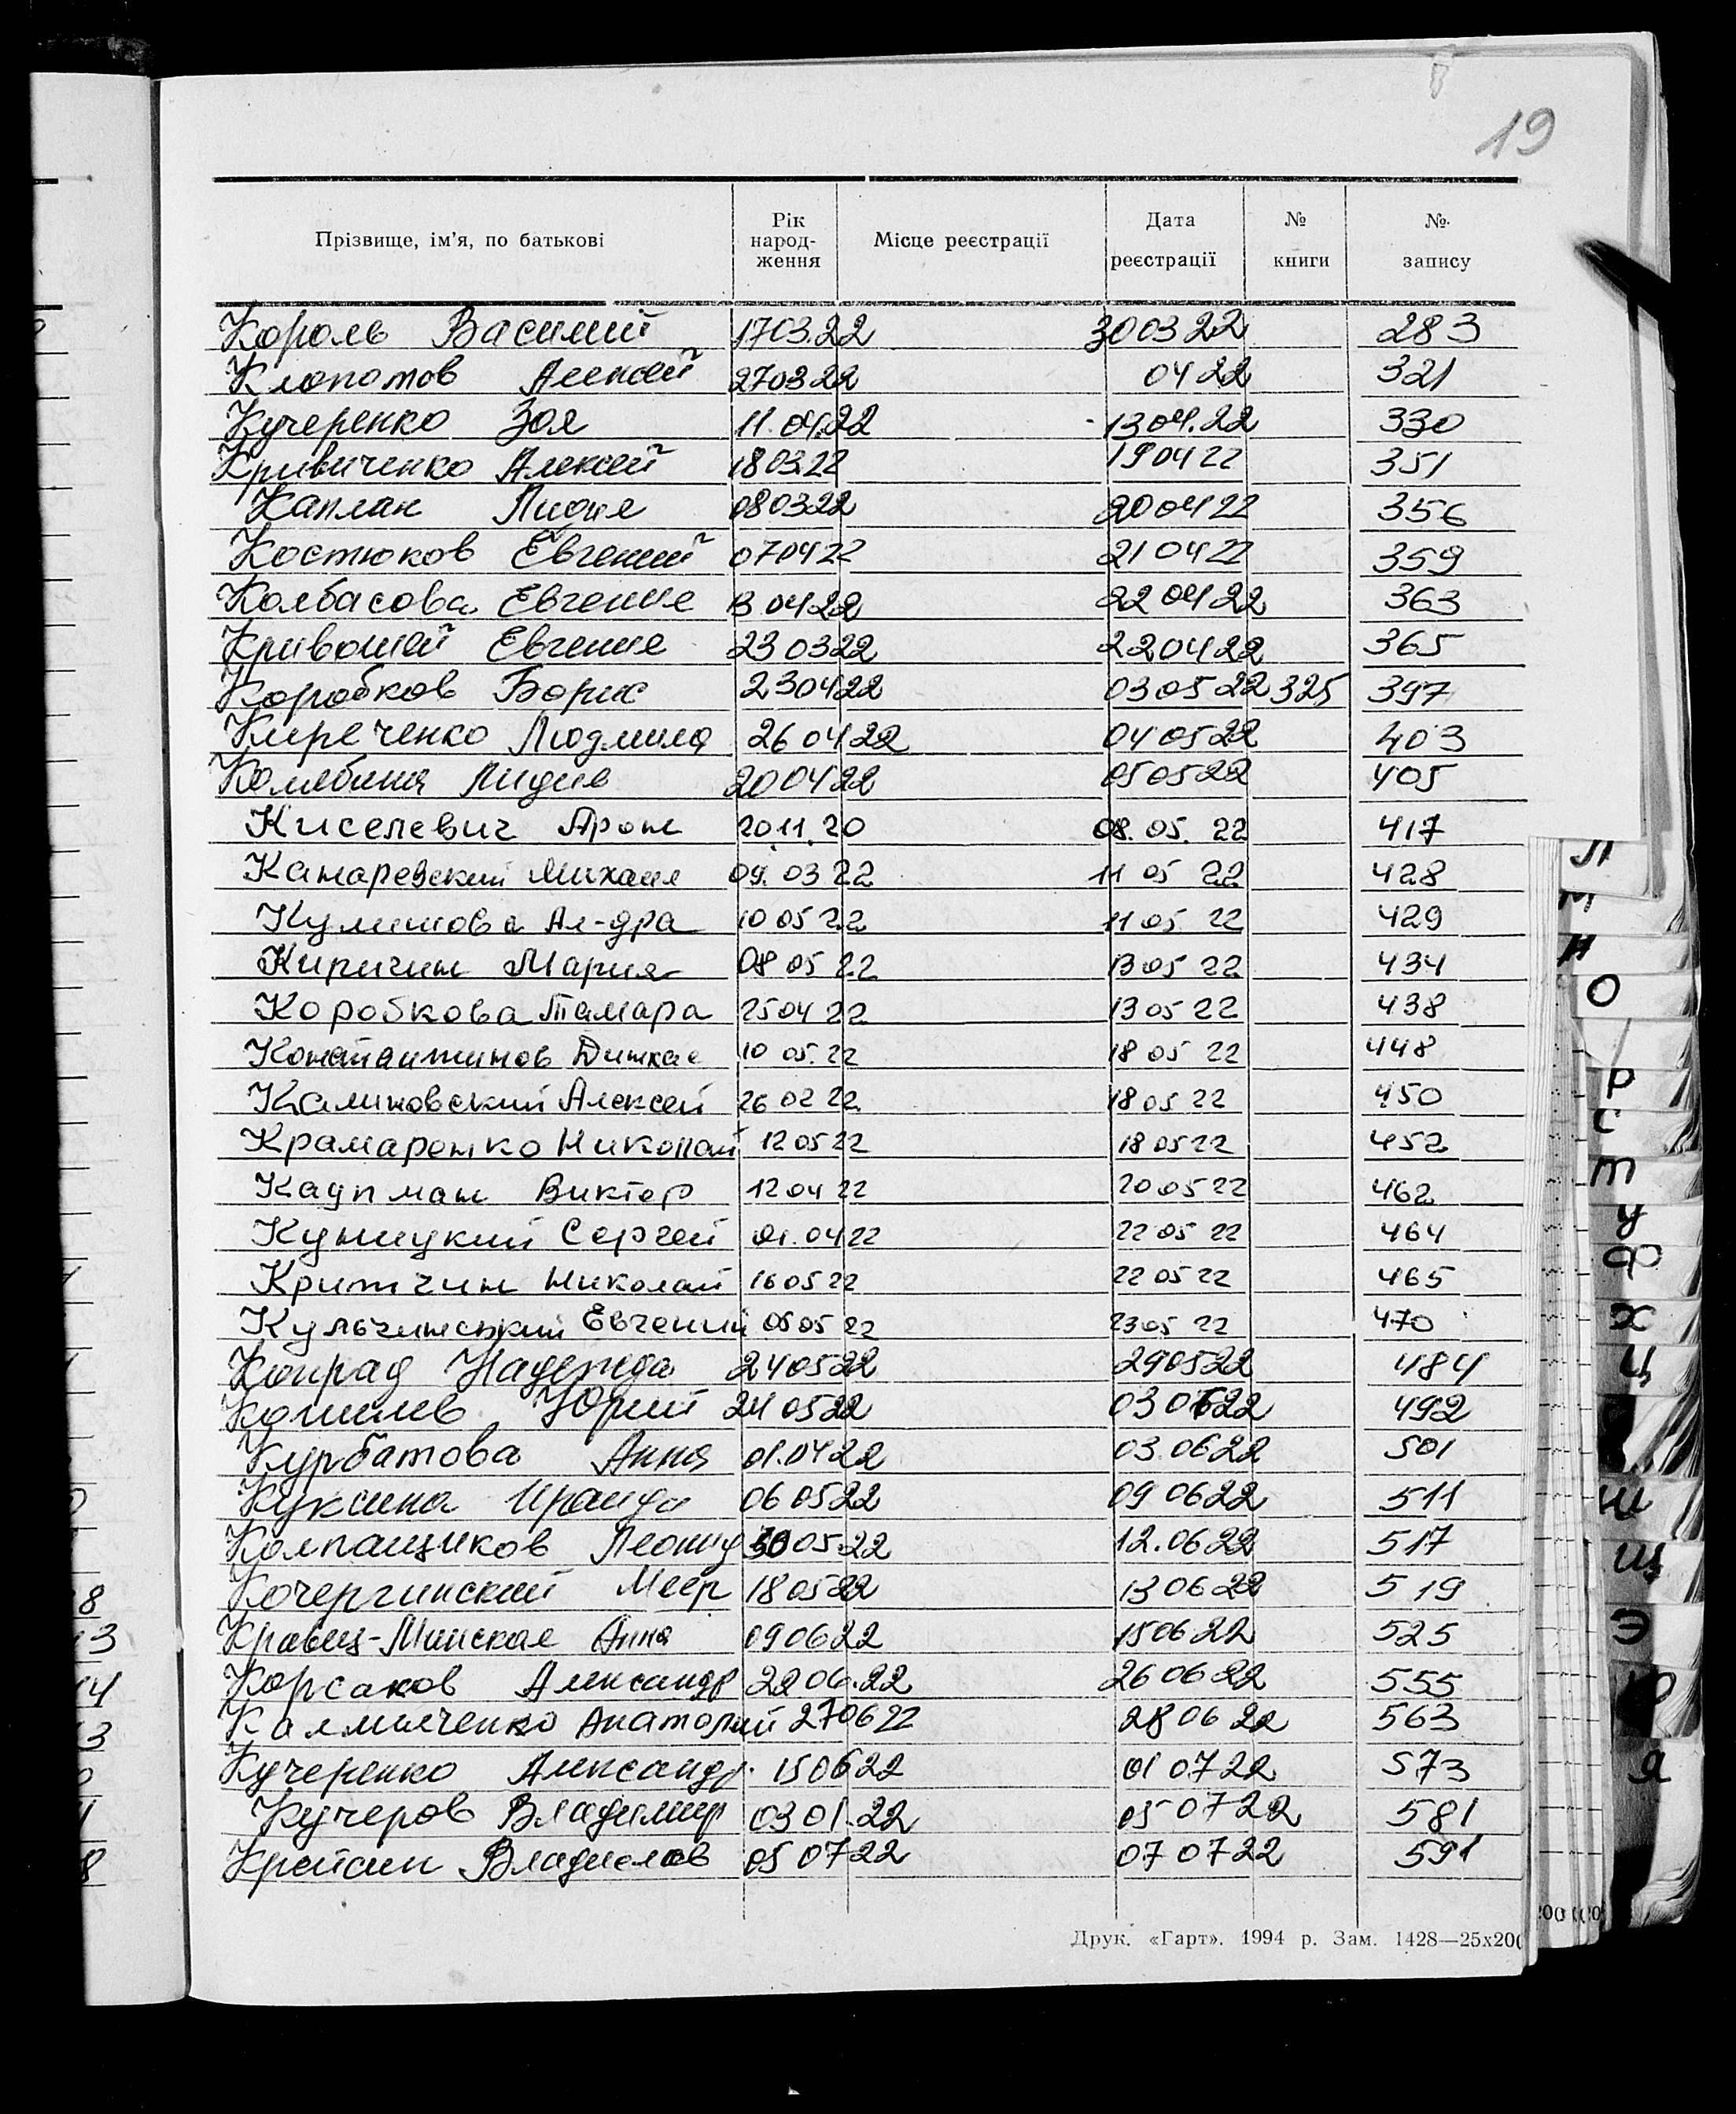 19
Прізвище, ім'я, по батькові Рік народ-ження Місце реєстрації Дата реєстрації № книги № запису
Король Василий 170322 300322 283
Клопотов Алексей 270322 0422 321
Кучеренко Зоя 11.04.22 1304.22 330
Кривиченко Алексей 180322 190422 351
Каплан Лидия 080322 200422 356
Костюков Евгений 070422 210422 359
Колбасова Евгения 130422 220422 363
Кривошей Евгения 230322 220422 365
Коробков Борис 230422 030522 325 397
Киреченко Людмила 260422 040522 403
Лидия 200422 050522 405
Киселевич Арон 2011.20 08.05.22 417
Михаил 09.0322 110522 428
Куликова Ал-дра 100522 110522 429
Киричин Мария 080522 130522 434
Коробкова Тамара 250422 130522 438
Константинов 1005.22 180522 448
Калиновский Алексей 260222 180522 450
Крамаренко Николай 120522 180522 452
Каупман Виктор 120422 200522 462
Куницкий Сергей 01.0422 220522 464
Критчин Николай 160522 220522 465
Кульчинський Евгений 050522 230522 470
Конрад Надежда 240522 290522 484
Юрий 240522 030622 492
Курбатова Анна 01.0422 03.0622 501
Куксина Ираида 060522 090622 511
Колпащиков Леонид 3005.22 12.0622 517
Кочергинский Меер 180522 130622 519
Кравец-Минская Анна 090622 150622 525
Корсаков Александр 2206.22 260622 555
Калмиченко Анатолий 270622 280622 563
Кучеренко Александр. 150622 010722 573
Кучеров Владимир 0301.22 050722 581
Владислав 050722 070722 591
Друк. «Гарт». 1994 р. Зам. 1428—25х200
Л
М
Н
О
Р
С
Т
У
Ф
Х
Ц
Ш
Щ
Э
Ю
Я